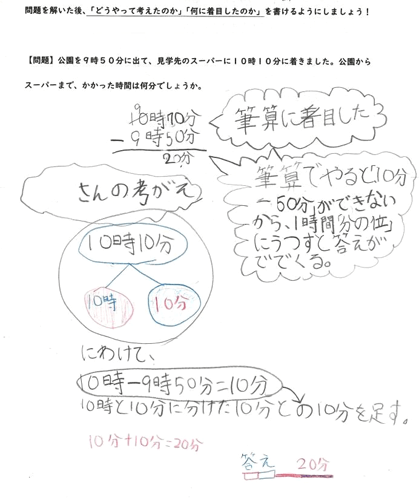 問題を解いた後、「どうやって考えたのか」「何に着目したのか」を書けるようにしましょう！
【問題】公園を９時５０分に出て、見学先のスーパーに１０時１０分に着きました。公園から
スーパーまで、かかった時間は何分でしょうか。
10分
－9時50分
20分
筆算に着目した
筆算でやると「10分
－50分」ができない
から、1時間「分の位」
にうつすと答えが
でてくる。
さんの考がえ
10時10分
10時 10分
にわけて、
10時－9時50分=10分
10時と10分に分けた10分との10分を足す。
10分+10分=20分
答え 20分